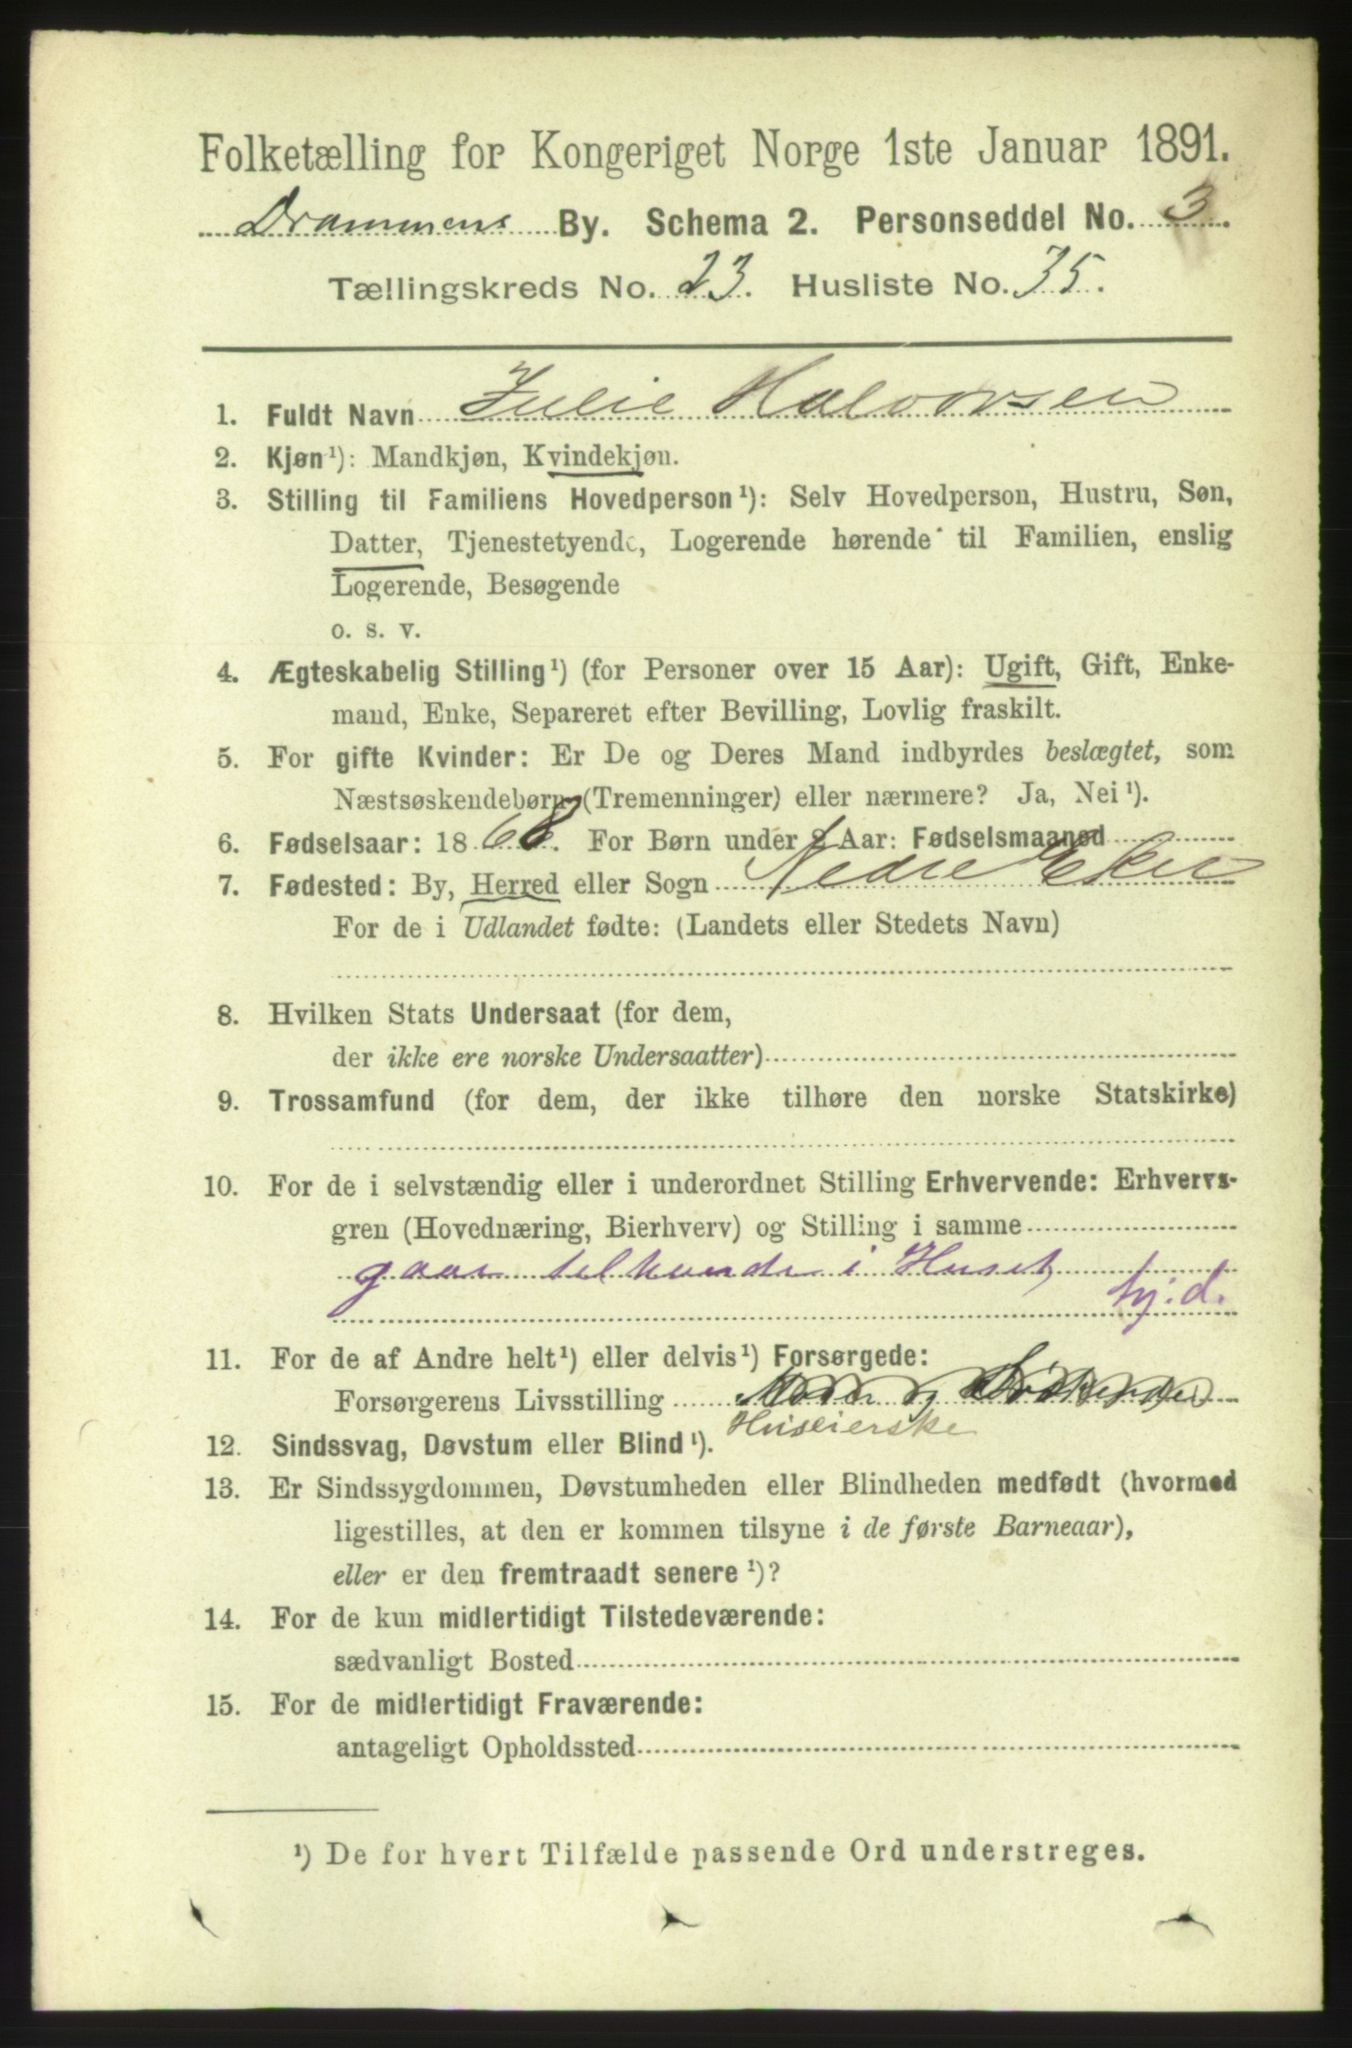 Folketælling for Kongeriget Norge 1ste Januar 1891.
Drammens By. Schema 2. Personseddel No. 3.
Tællingskreds No. 23. Husliste No. 35.
1. Fuldt Navn Julie Halvorsen
2. Kjøn¹): Mandkjøn, Kvindekjøn.
3. Stilling til Familiens Hovedperson¹): Selv Hovedperson, Hustru, Søn,
Datter, Tjenestetyende, Logerende hørende til Familien, enslig
Logerende, Besøgende
o. s. v.
4. Ægteskabelig Stilling¹) (for Personer over 15 Aar): Ugift, Gift, Enke-
mand, Enke, Separeret efter Bevilling, Lovlig fraskilt.
5. For gifte Kvinder: Er De og Deres Mand indbyrdes beslægtet, som
Næstsøskendebørn (Tremenninger) eller nærmere? Ja, Nei¹).
6. Fødselsaar: 1868. For Børn under 2 Aar: Fødselsmaaned
7. Fødested: By, Herred eller Sogn Nedre Eker
For de i Udlandet fødte: (Landets eller Stedets Navn)
8. Hvilken Stats Undersaat (for dem,
der ikke ere norske Undersaatter)
9. Trossamfund (for dem, der ikke tilhøre den norske Statskirke)
10. For de i selvstændig eller i underordnet Stilling Erhvervende: Erhvervs-
gren (Hovednæring, Bierhverv) og Stilling i samme
gaar tilhaande i Huset
tj.d.
11. For de af Andre helt¹) eller delvis¹) Forsørgede:
Forsørgerens Livsstilling
Huseierske
12. Sindssvag, Døvstum eller Blind¹).
13. Er Sindssygdommen, Døvstumheden eller Blindheden medfødt (hvormed
ligestilles, at den er kommen tilsyne i de første Barneaar),
eller er den fremtraadt senere¹)?
14. For de kun midlertidigt Tilstedeværende:
sædvanligt Bosted
15. For de midlertidigt Fraværende:
antageligt Opholdssted
¹) De for hvert Tilfælde passende Ord understreges.